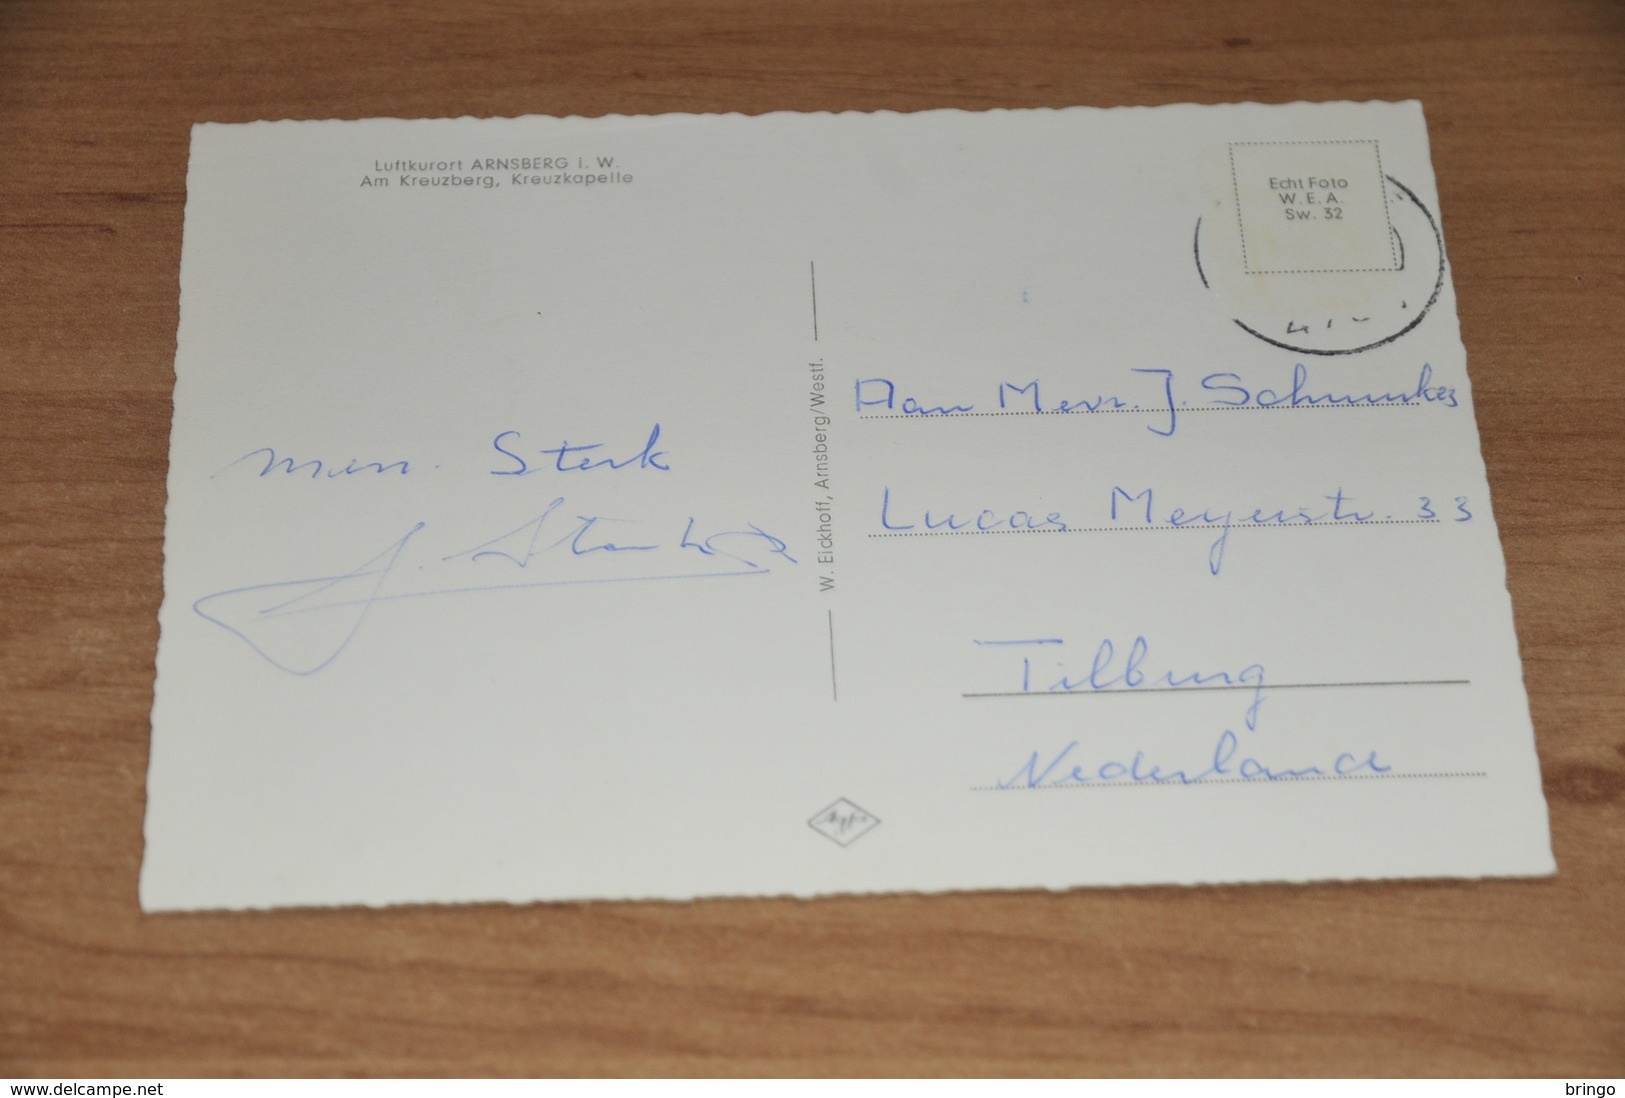 Luftkurort ARNSBERG i. W.
Am Kreuzberg, Kreuzkapelle
Echt Foto
W. E. A.
Sw. 32
W. Eickhoff, Arnsberg/Westf.
Sterk
J.
Aan Mevr. J. Schunnkes
Lucas Meyerstr. 33
Tilburg
Nederland
Agfa
www.delcampe.net
bringo